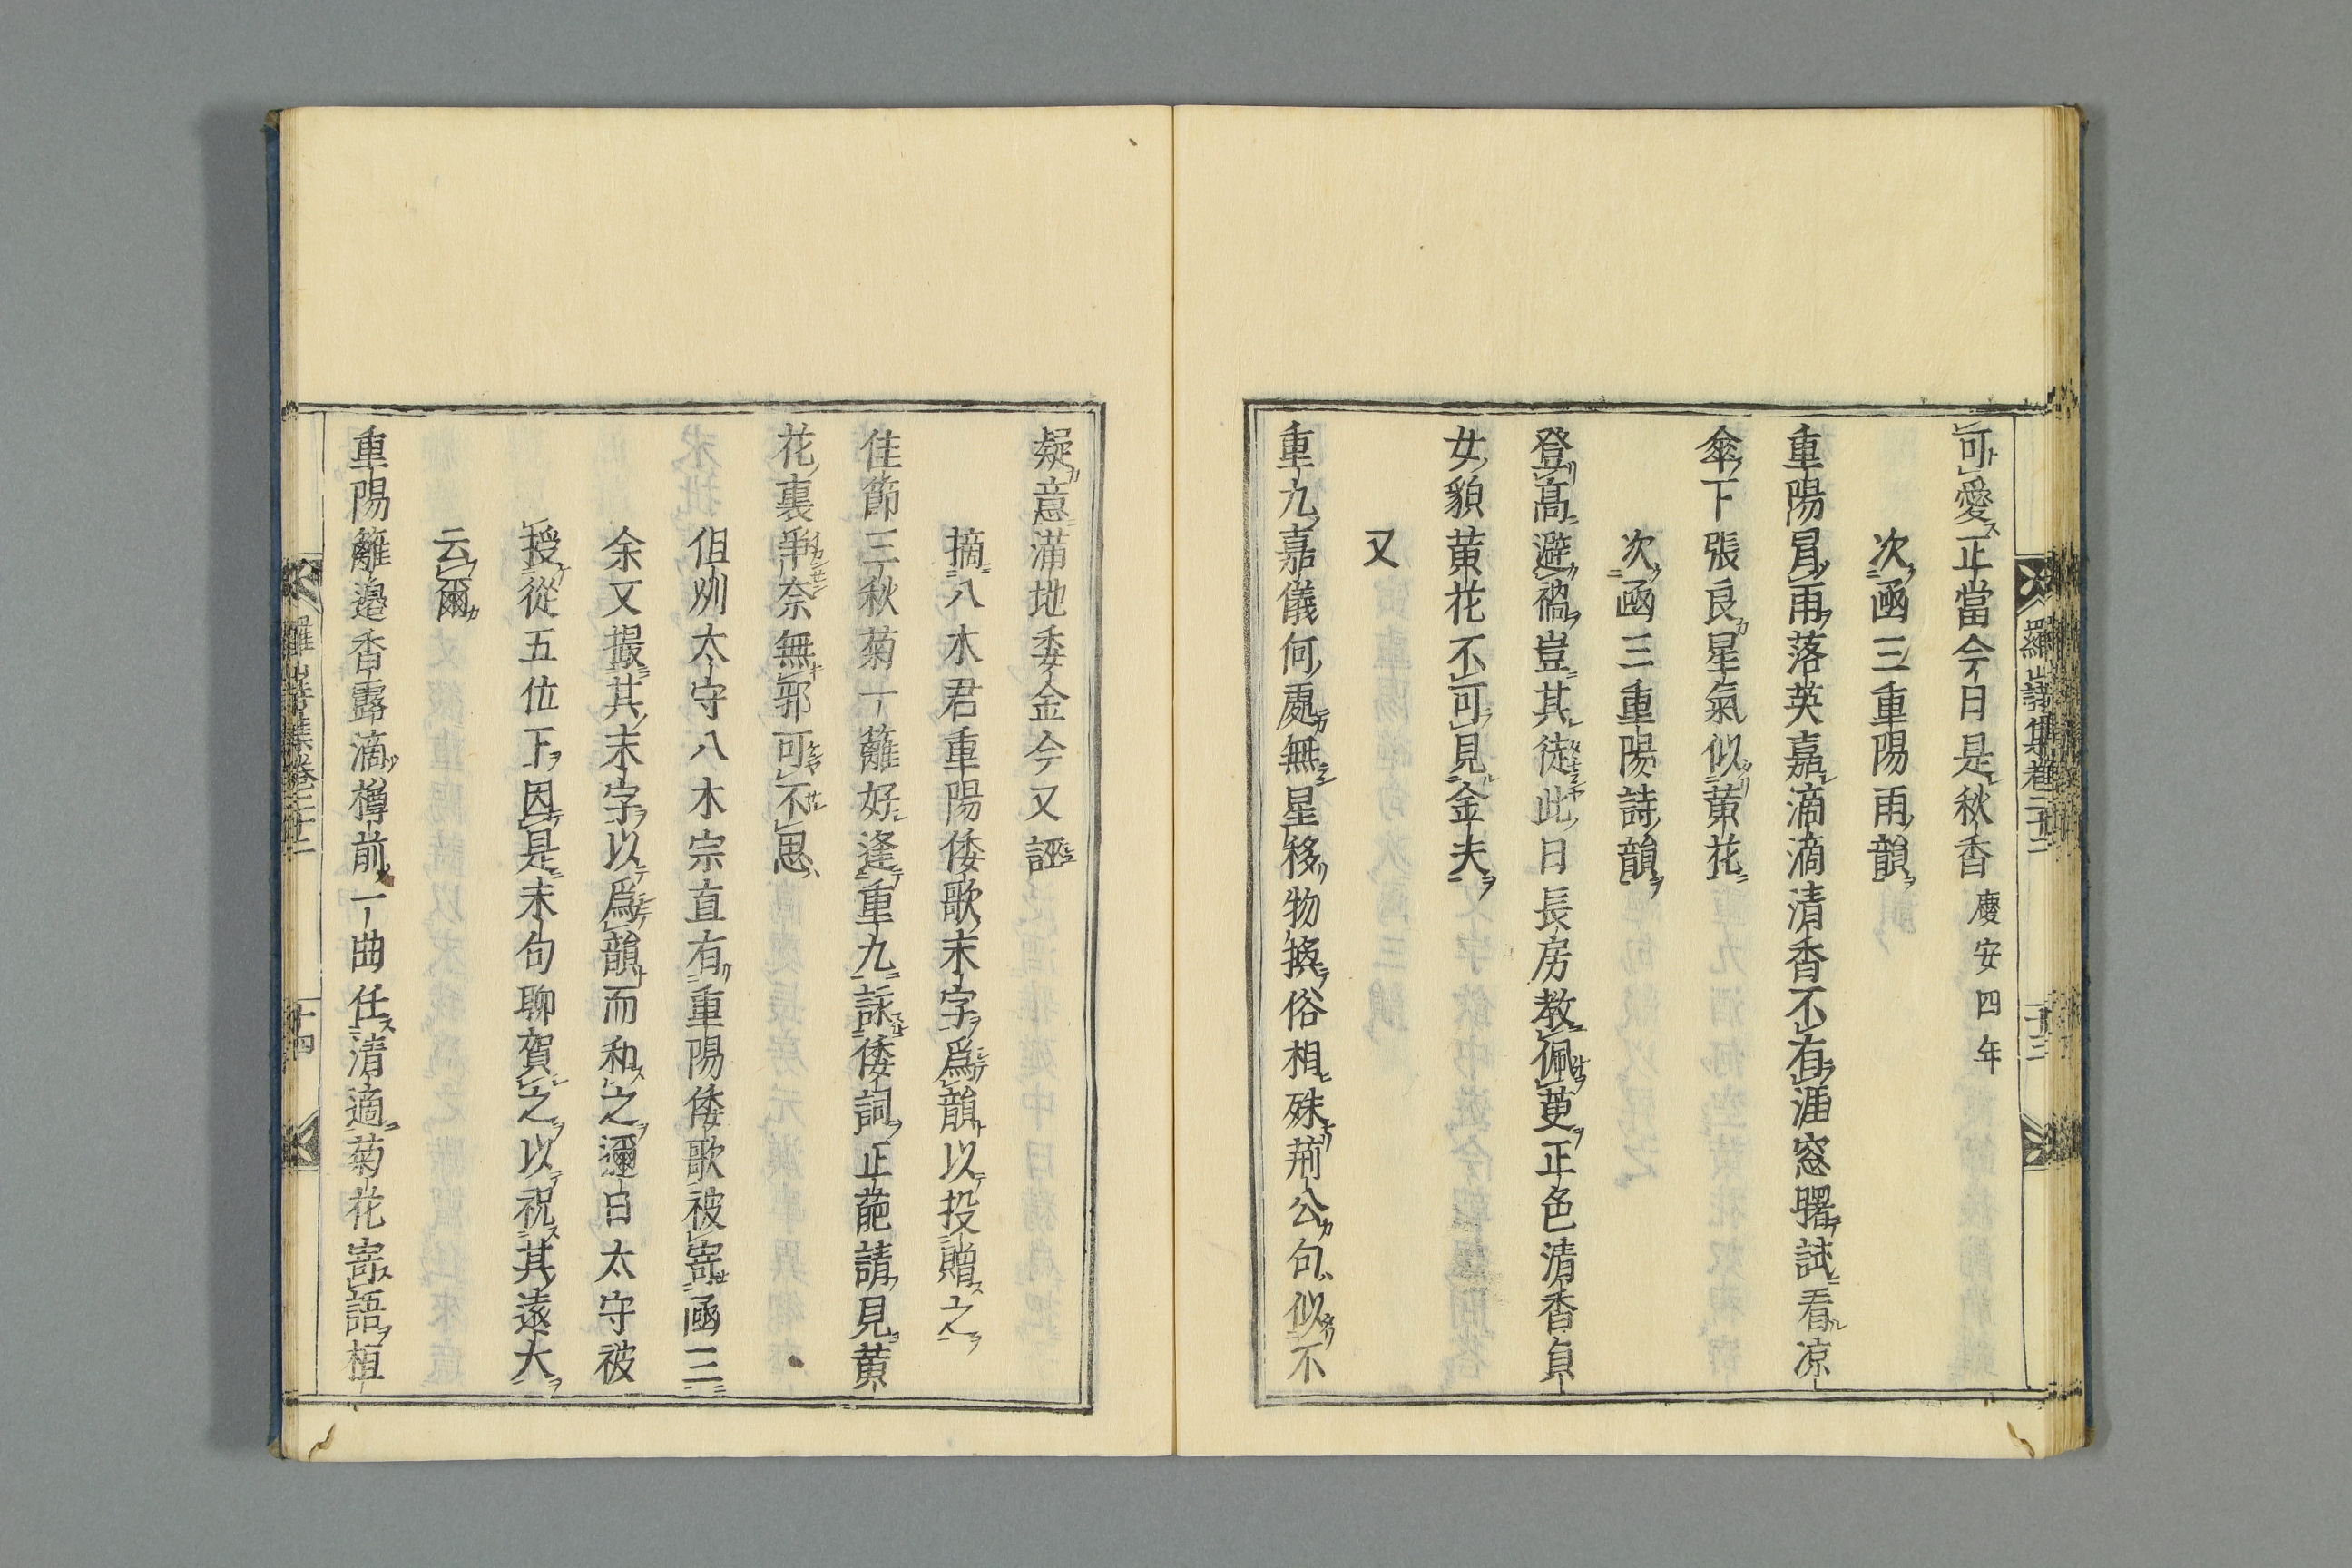 可愛正當今日是秋香 慶安四年
次函三重陽雨韻
重陽冒雨落英嘉滴滴清香不有涯窓曙試看凉
傘下張良星氣似黄花
次函三重陽詩韻
登高避禍豈其徒此日長房教佩萸正色清香貞
女貌黄花不可見金夫
又
重九嘉儀何處無星移物換俗相殊荊公句似不
羅山詩集卷二十二 十三
疑意滿地委金今又誣
摘八木君重陽倭歌末字爲韻以投贈之
佳節三秋菊一籬好逢重九詠倭詞正葩請見黄
花裏爭奈無邪可不思
但州太守八木宗直有重陽倭歌被寄函三
余又撮其末字以爲韻而和之邇日太守被
授從五位下因是末句聊賀之以祝其遠大
云爾
重陽籬邉香露滴樽前一曲任清適菊花寄語桓
羅山詩集卷二十二 十四